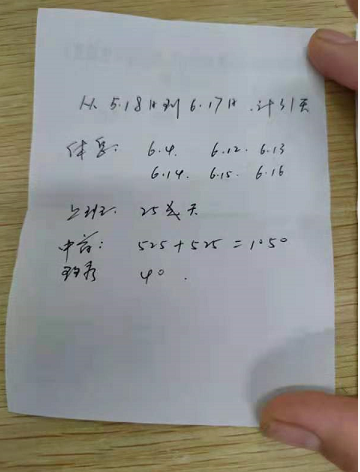 从5.18日到6.17日.计31天
休息: 6.4. 6.12. 6.13
6.14. 6.15. 6.16
上班: 25天
中: 525+525=1050
40.